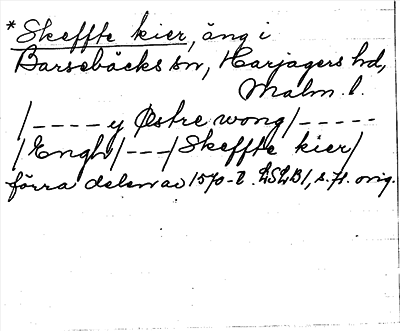 *Skeffte kier, äng i
Barsebäcks sn, Harjagers hd,
Malm. l.
/---- y Østre wong/-----
/Engh/---/Skeffte kier/
förra delen av 1570-t. LSLB1, s. 71. orig.